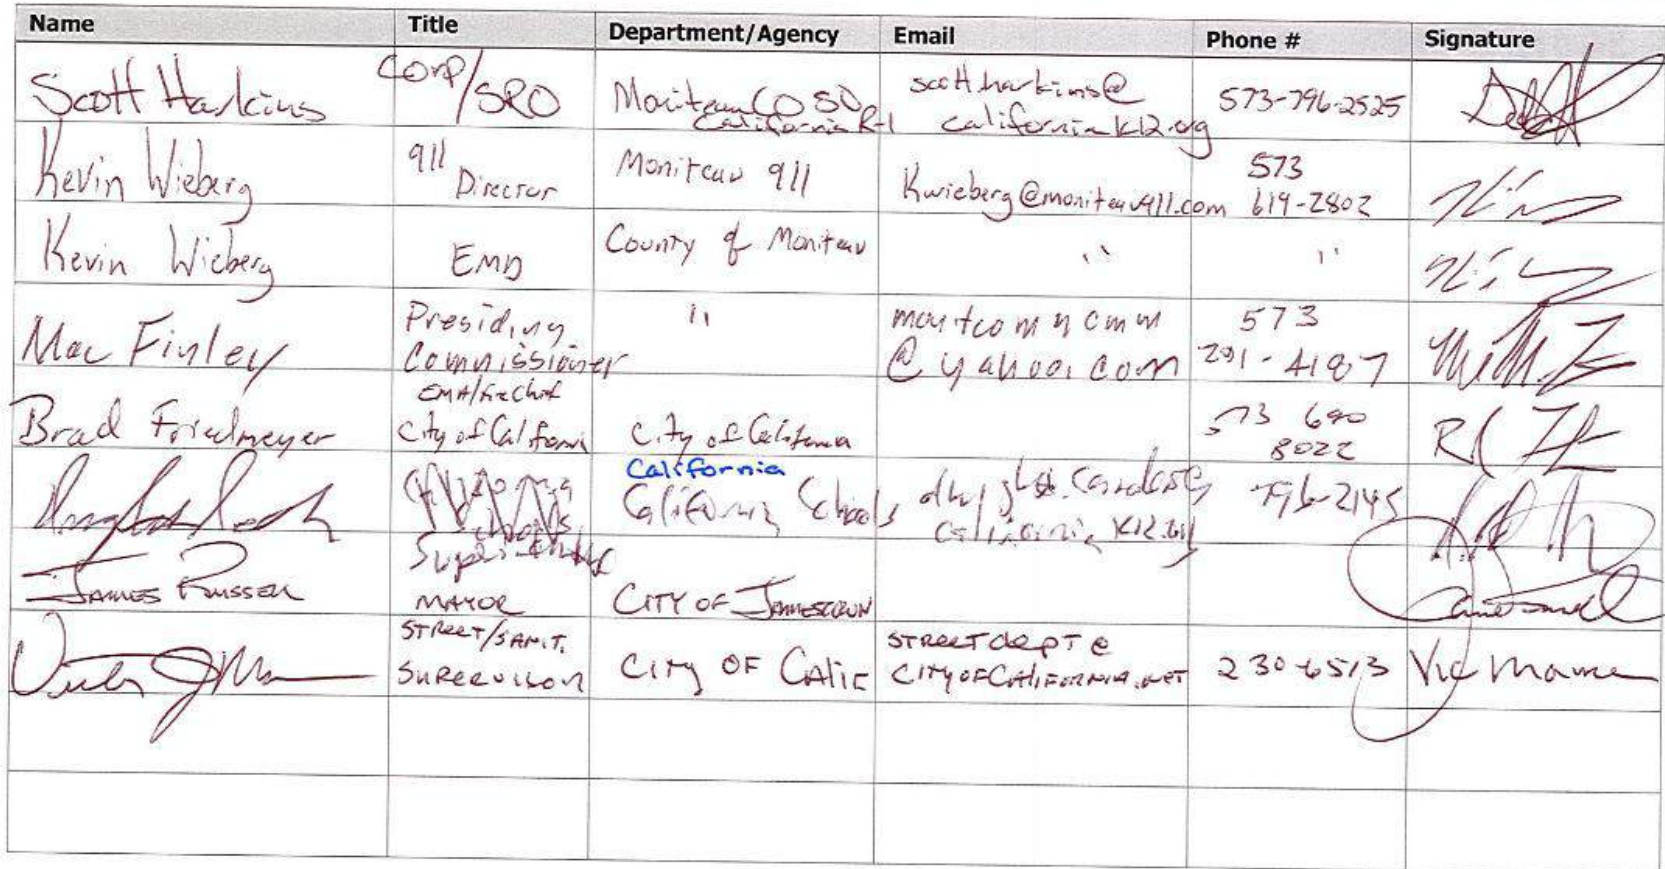 Name Title Department/Agency Email Phone # Signature
Scott Harkins Corp/SRO Moniteau CO SO California R-1 scott.harkins@ californiak12.org 573-796-2525
Kevin Wieberg 911 Director Moniteau 911 Kwieberg@moniteau911.com 573 619-2802
Kevin Wieberg EMD County of Moniteau " "
Mac Finley Presiding Commissioner " @yahoo.com 573 291-4187
Brad Friedmeyer EMA/Fire Chief City of California City of California 573 690 8022
California California Schools 796-2145
James Russell MAYOR CITY OF JAMESTOWN
STREET/SANIT. SUPERVISOR CITY OF CALIF STREETDEPT@ CITYOFCALIFORNIA.NET 230-6513 Vic